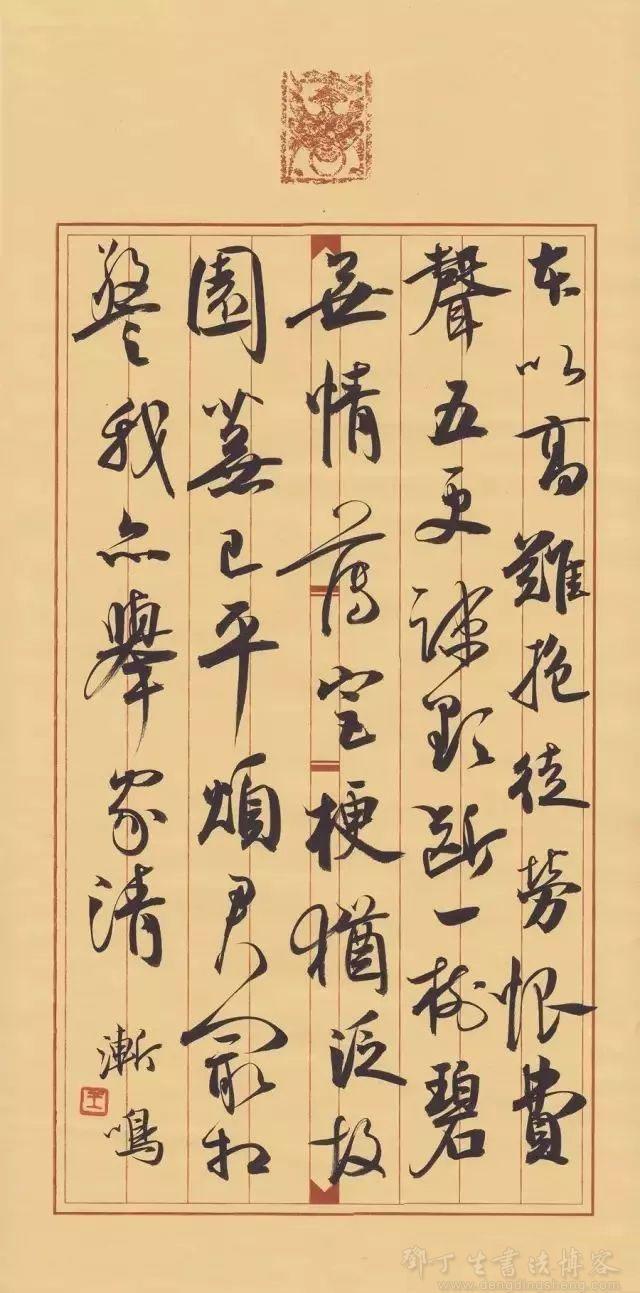 本以高難飽徒勞恨費
聲五更疎欲斷一樹碧
無情薄宦梗猶泛故
園蕪已平煩君最相
警我亦舉家清
漸鳴
鄧丁生書法博客
www.dengdingsheng.com